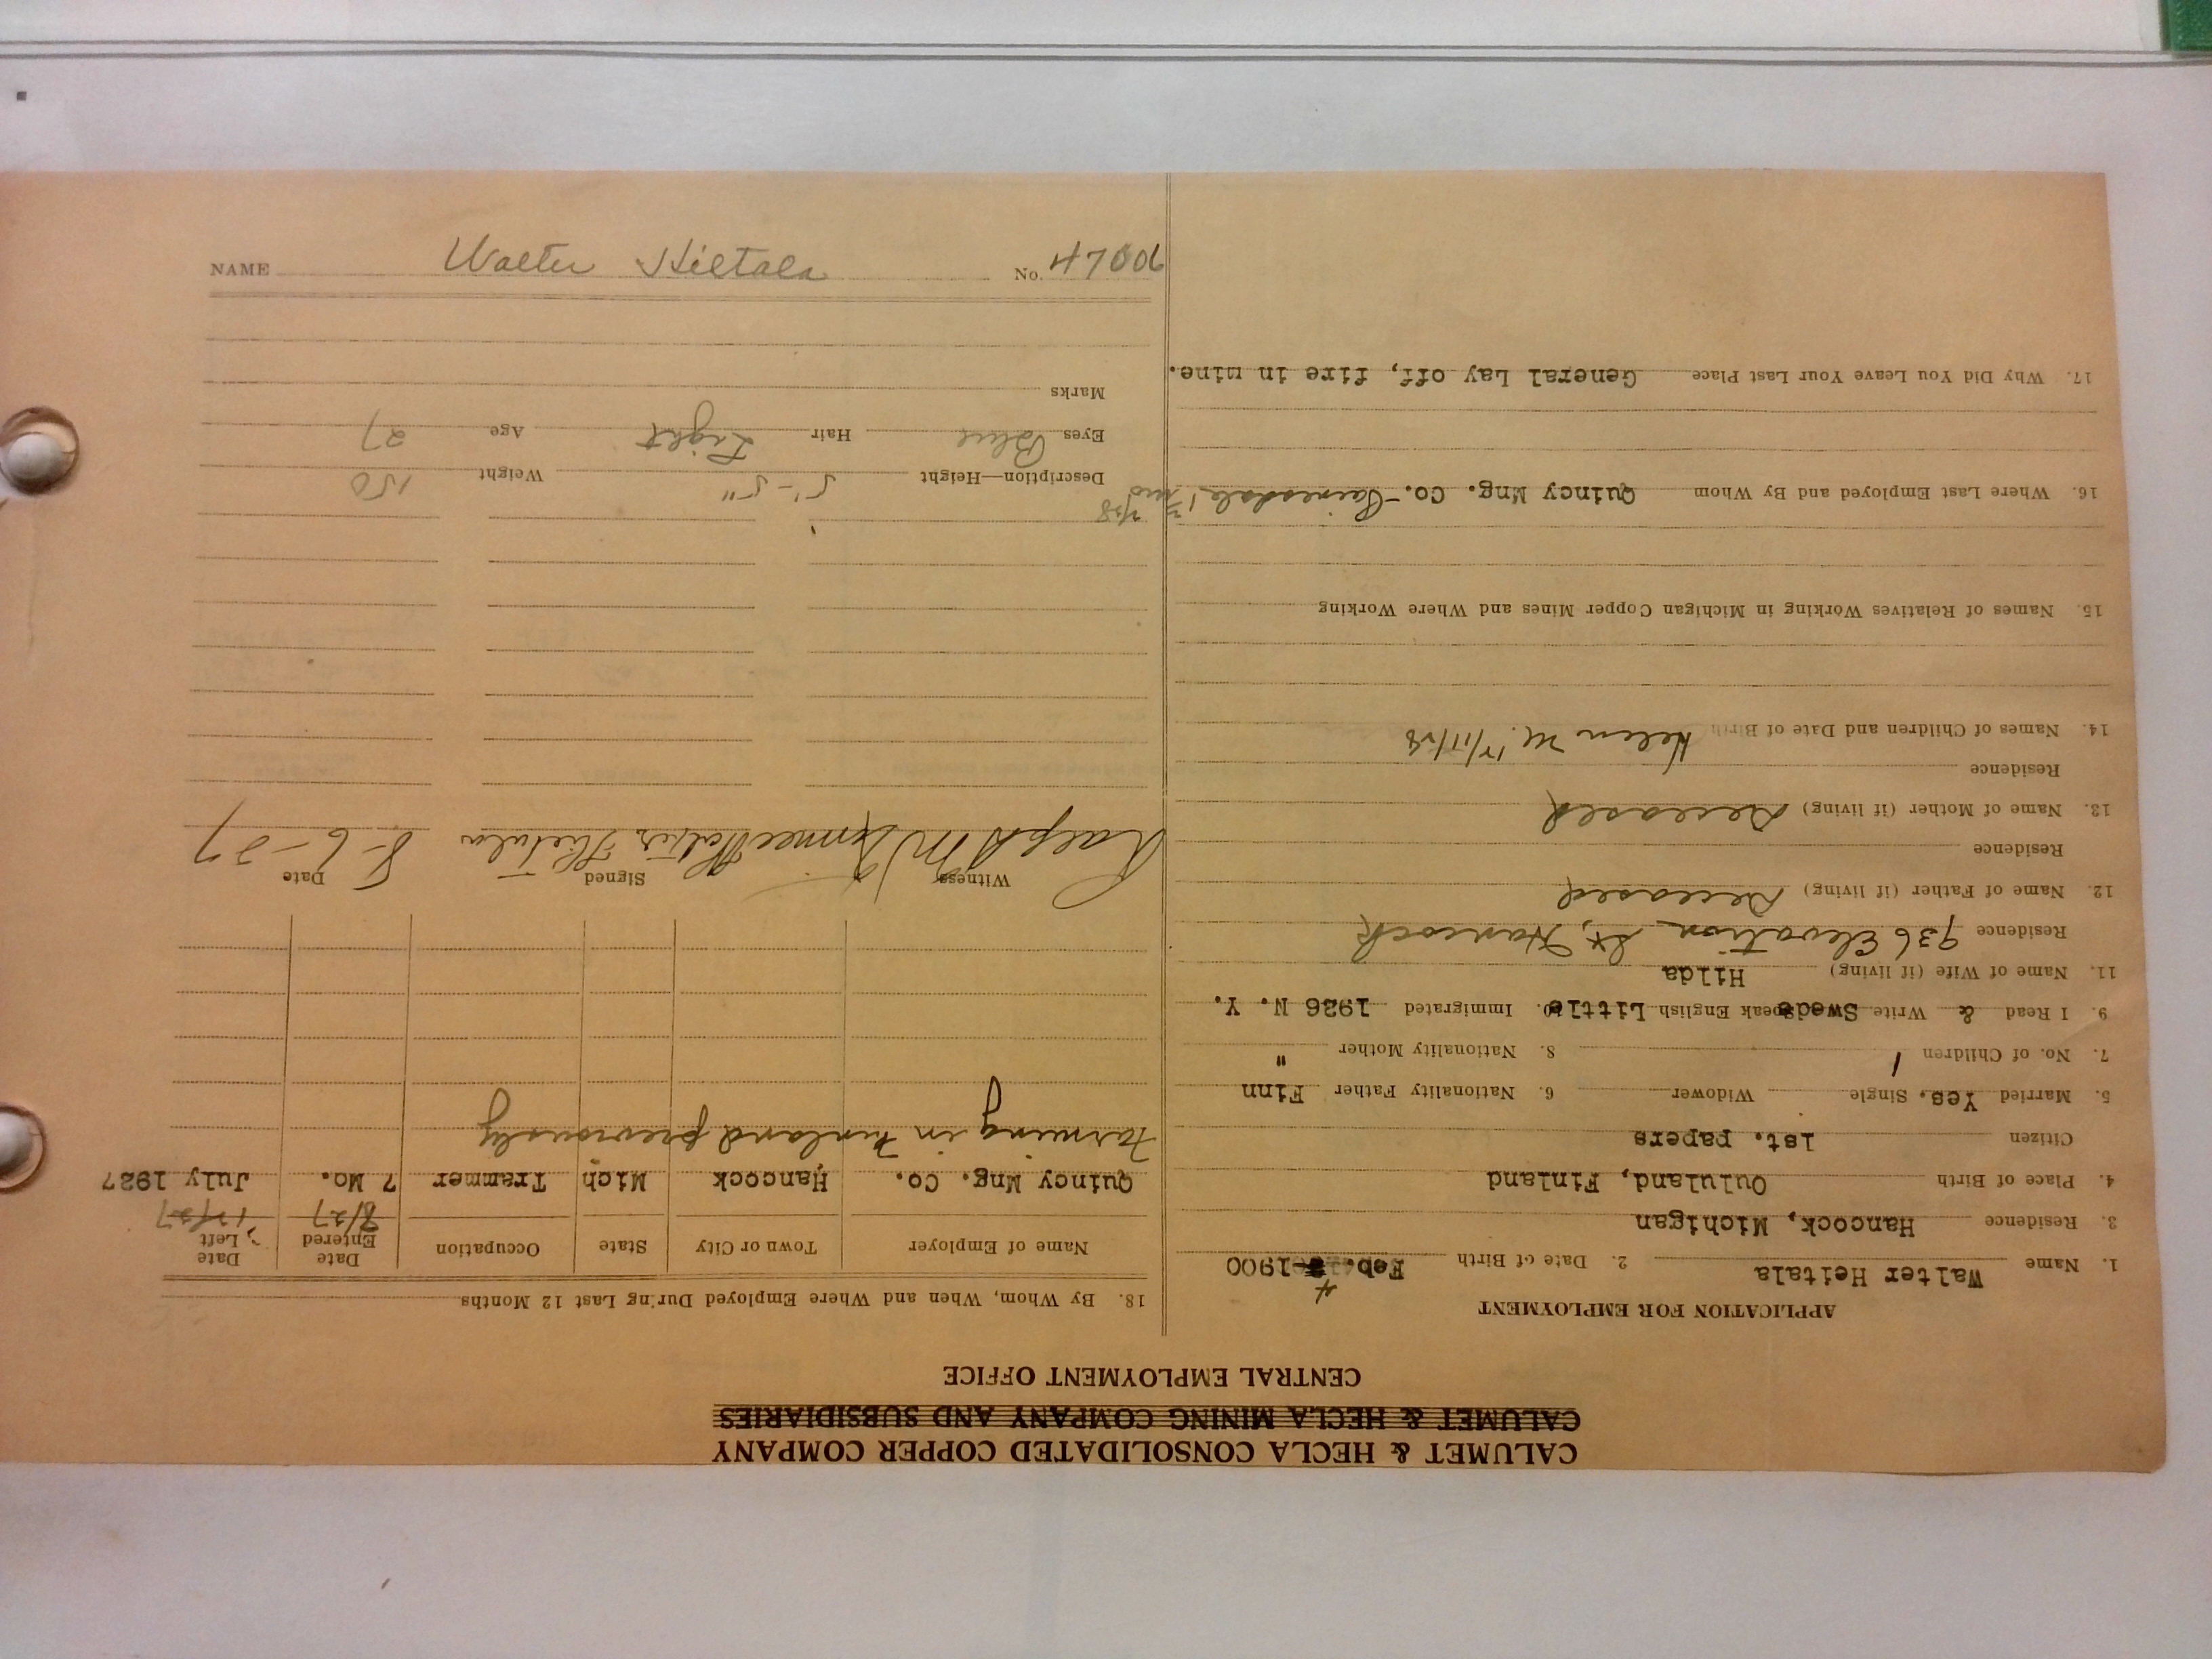 CALUMET & HECLA CONSOLIDATED COPPER COMPANY
CALUMET & HECLA MINING COMPANY AND SUBSIDIARIES
CENTRAL EMPLOYMENT OFFICE
APPLICATION FOR EMPLOYMENT
1. Name Walter Heitala 2. Date of Birth Feb. 4 1900
3. Residence Hancock, Michigan
4. Place of Birth Oululand, Finland
Citizen 1st. papers
5. Married Yes. Single Widower 6. Nationality Father Finn
7. No. of Children 1 8. Nationality Mother "
9. I Read & Write Swede Speak English Little 10. Immigrated 1926 N. Y.
11. Name of Wife (if living) Hilda
Residence 936 Elevation St, Hancock
12. Name of Father (if living) Deceased
Residence
13. Name of Mother (if living) Deceased
Residence
14. Names of Children and Date of Birth Helen M. 12/11/28
15. Names of Relatives Working in Michigan Copper Mines and Where Working
16. Where Last Employed and By Whom Quincy Mng. Co. - Painesdale
17. Why Did You Leave Your Last Place General Lay off, fire in mine.
18. By Whom, When and Where Employed During Last 12 Months
Name of Employer Town or City State Occupation Date Entered Date Left
8/27 12/27
Quincy Mng. Co. Hancock Mich Trammer 7 Mo. July 1927
Farming in Finland previously
Witness Signed Date
Ralph Walter Hietala 8-6-27
Description—Height 5'-5" Weight 150
Eyes Blue Hair Light Age 27
Marks
NAME Walter Hietala No. 47006